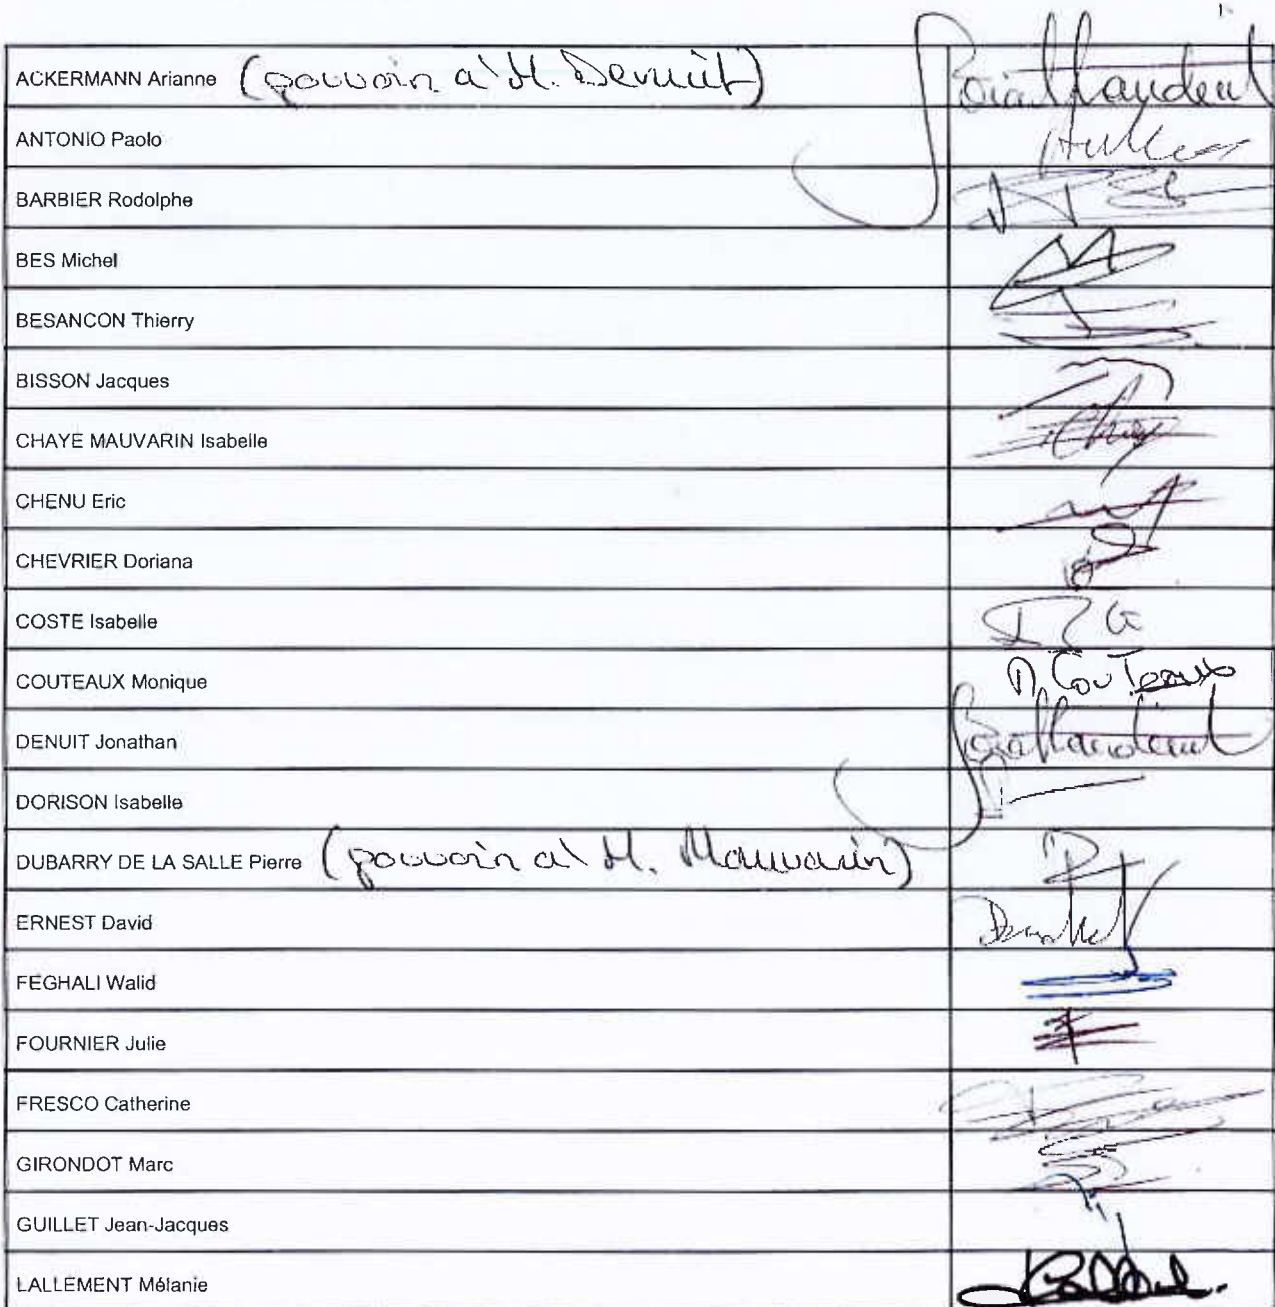 ACKERMANN Arianne (pouvoir à M. Denuit)
ANTONIO Paolo
BARBIER Rodolphe
BES Michel
BESANCON Thierry
BISSON Jacques
CHAYE MAUVARIN Isabelle
CHENU Eric
CHEVRIER Doriana
COSTE Isabelle
COUTEAUX Monique M. Couteaux
DENUIT Jonathan
DORISON Isabelle
DUBARRY DE LA SALLE Pierre (pouvoir à M. Mauvarin)
ERNEST David
FEGHALI Walid
FOURNIER Julie
FRESCO Catherine
GIRONDOT Marc
GUILLET Jean-Jacques
LALLEMENT Mélanie